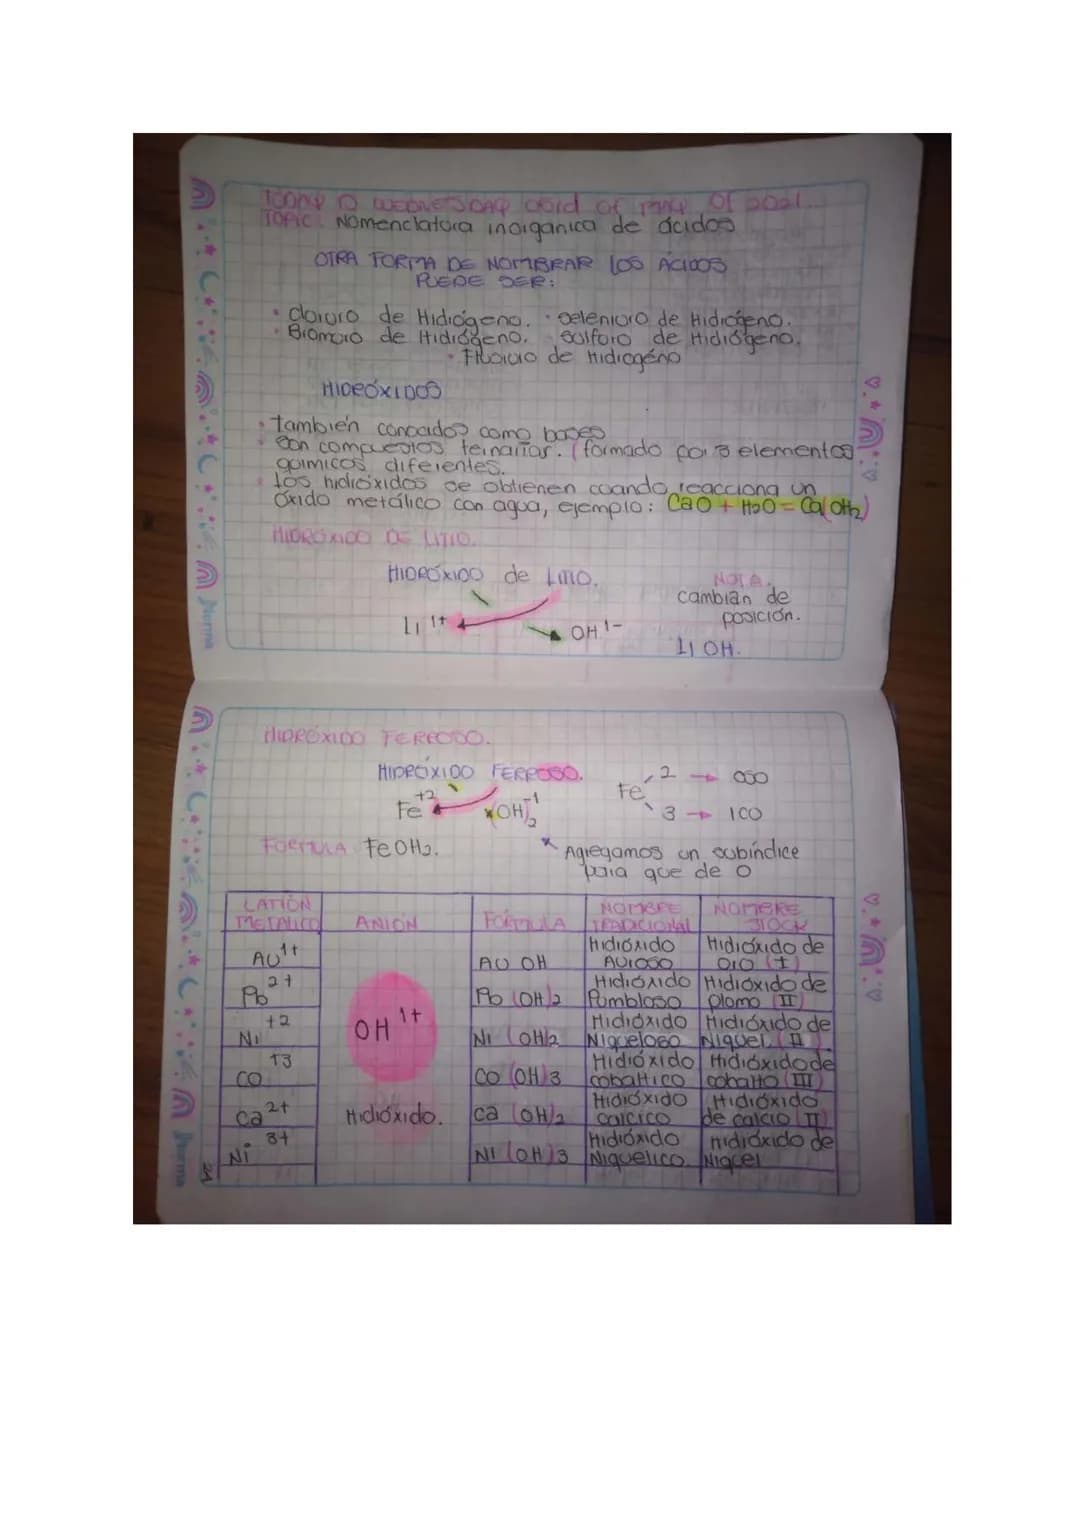 TODAY IS WEDNESDAY OF 2021.
TOPIC: Nomenclatura inorganica de ácidos
OTRA FORMA DE NOMBRAR LOS ÁCIDOS
PUEDE SER:
· Cloruro de Hidrógeno. · Seleniuro de Hidrógeno.
· Bromuro de Hidrógeno. · Sulfuro de Hidrógeno.
· Fluoruro de Hidrogéno
HIDRÓXIDOS
· también conocidos como bases
· Son compuestos ternarios. (formado por 3 elementos
quimicos diferentes.
· Los hidróxidos se obtienen cuando reacciona un
óxido metálico con agua, ejemplo: CaO + H2O = Ca(OH2)
HIDRÓXIDO DE LITIO.
HIDRÓXIDO de LITIO.
NOTA.
cambian de
posición.
Li 1+ OH 1-
Li OH.
Norma
HIDRÓXIDO FERROSO.
HIDRÓXIDO FERROSO.
Fe 2 → OSO
3 → ICO
Fe +2 *(OH)2 -1
FORMULA FeOH2.
* Agregamos un subíndice
para que de 0
CATIÓN METALICO ANIÓN FÓRMULA NOMBRE TRADICIONAL NOMBRE STOCK
Au 1+ Au OH Hidróxido Auroso Hidróxido de Oro (I)
Pb 2+ Pb (OH)2 Hidróxido Pumbloso Hidróxido de plomo (II)
OH 1+
Ni +2 Ni (OH)2 Hidróxido Niqueloso Hidróxido de Niquel (II)
Co +3 Co (OH)3 Hidróxido cobaltico Hidróxido de cobalto (III)
Ca 2+ Hidróxido. Ca (OH)2 Hidróxido calcico Hidróxido de calcio (II)
Ni 3+ Ni (OH)3 Hidróxido Niquelico. hidróxido de Niquel
Norma